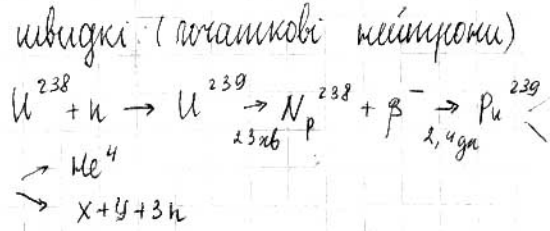 швидкі (початкові нейтрони)
U²³⁸ + n → U²³⁹ → 23хв Np²³⁸ + β⁻ → 2,4дн Pu²³⁹ <
↗ He⁴
↘ x + y + 3n